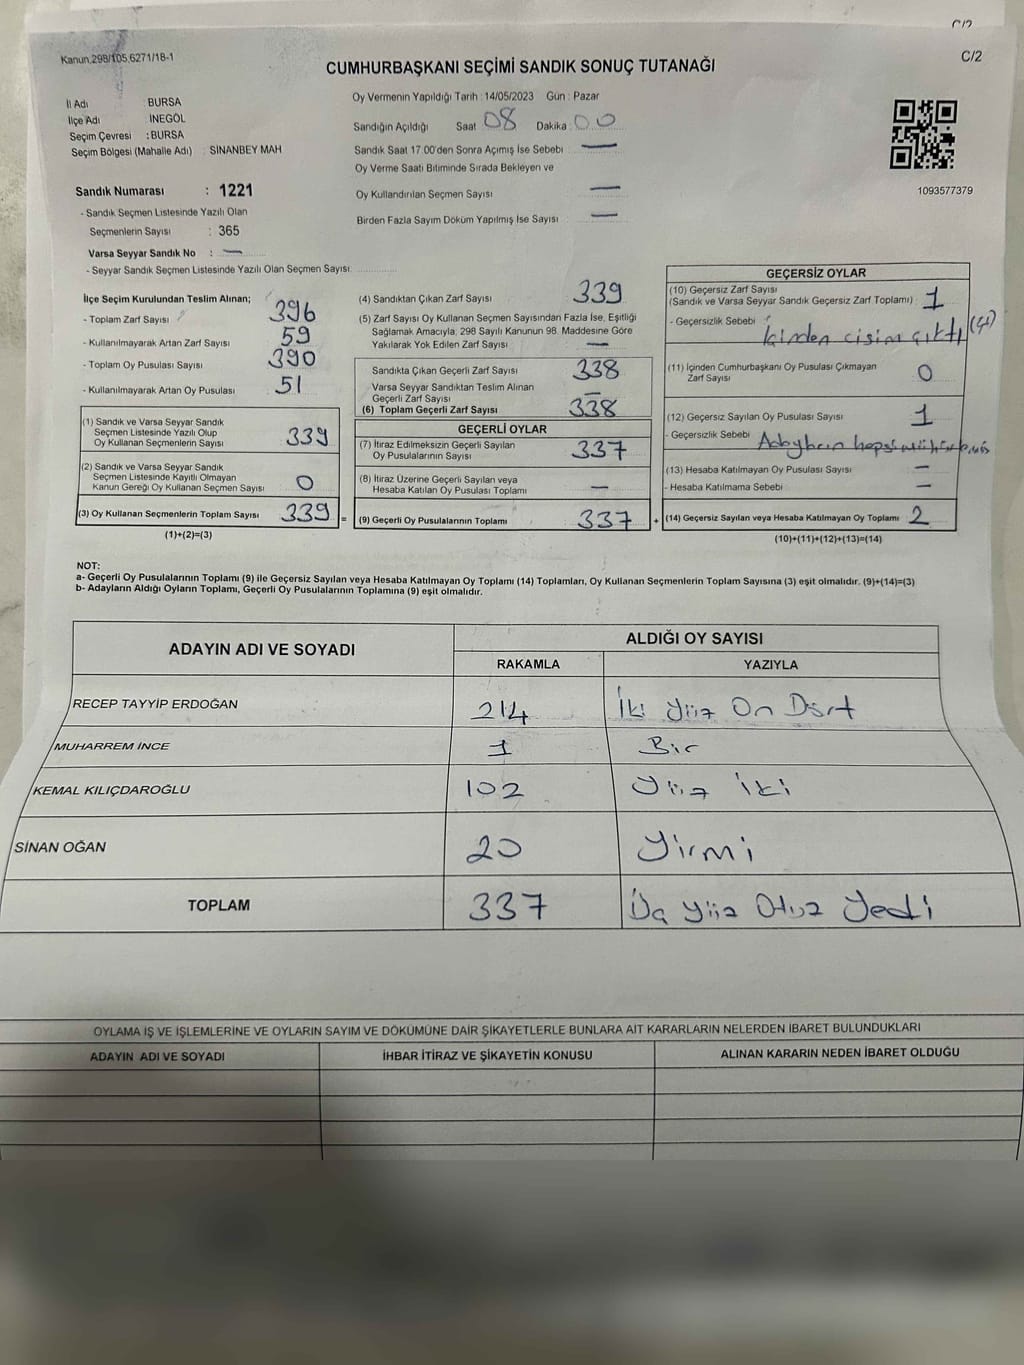 C/2
Kanun.298/105,6271/18-1
C/2
CUMHURBAŞKANI SEÇİMİ SANDIK SONUÇ TUTANAĞI
İl Adı : BURSA
İlçe Adı : İNEGÖL
Seçim Çevresi : BURSA
Seçim Bölgesi (Mahalle Adı) : SİNANBEY MAH
Sandık Numarası : 1221
- Sandık Seçmen Listesinde Yazılı Olan
Seçmenlerin Sayısı : 365
Varsa Seyyar Sandık No : —
- Seyyar Sandık Seçmen Listesinde Yazılı Olan Seçmen Sayısı
Oy Vermenin Yapıldığı Tarih : 14/05/2023 Gün : Pazar
Sandığın Açıldığı Saat 08 Dakika 00
Sandık Saat 17.00'den Sonra Açımış İse Sebebi —
Oy Verme Saati Bitiminde Sırada Bekleyen ve
Oy Kullandırılan Seçmen Sayısı —
Birden Fazla Sayım Döküm Yapılmış İse Sayısı —
1093577379
İlçe Seçim Kurulundan Teslim Alınan;
- Toplam Zarf Sayısı 396
- Kullanılmayarak Artan Zarf Sayısı 59
- Toplam Oy Pusulası Sayısı 390
- Kullanılmayarak Artan Oy Pusulası 51
(1) Sandık ve Varsa Seyyar Sandık
Seçmen Listesinde Yazılı Olup
Oy Kullanan Seçmenlerin Sayısı 339
(2) Sandık ve Varsa Seyyar Sandık
Seçmen Listesinde Kayıtlı Olmayan
Kanun Gereği Oy Kullanan Seçmen Sayısı 0
(3) Oy Kullanan Seçmenlerin Toplam Sayısı 339 =
(1)+(2)=(3)
(4) Sandıktan Çıkan Zarf Sayısı 339
(5) Zarf Sayısı Oy Kullanan Seçmen Sayısından Fazla İse, Eşitliği
Sağlamak Amacıyla; 298 Sayılı Kanunun 98. Maddesine Göre
Yakılarak Yok Edilen Zarf Sayısı —
Sandıkta Çıkan Geçerli Zarf Sayısı 338
Varsa Seyyar Sandıktan Teslim Alınan
Geçerli Zarf Sayısı —
(6) Toplam Geçerli Zarf Sayısı 338
GEÇERLİ OYLAR
(7) İtiraz Edilmeksizin Geçerli Sayılan
Oy Pusulalarının Sayısı 337
(8) İtiraz Üzerine Geçerli Sayılan veya
Hesaba Katılan Oy Pusulası Toplamı —
(9) Geçerli Oy Pusulalarının Toplamı 337 +
GEÇERSİZ OYLAR
(10) Geçersiz Zarf Sayısı
(Sandık ve Varsa Seyyar Sandık Geçersiz Zarf Toplamı) : 1
- Geçersizlik Sebebi : İçinden cisim çıktı
(11) İçinden Cumhurbaşkanı Oy Pusulası Çıkmayan
Zarf Sayısı 0
(12) Geçersiz Sayılan Oy Pusulası Sayısı 1
- Geçersizlik Sebebi hepsi
(13) Hesaba Katılmayan Oy Pusulası Sayısı —
- Hesaba Katılmama Sebebi —
(14) Geçersiz Sayılan veya Hesaba Katılmayan Oy Toplamı 2
(10)+(11)+(12)+(13)=(14)
NOT:
a- Geçerli Oy Pusulalarının Toplamı (9) ile Geçersiz Sayılan veya Hesaba Katılmayan Oy Toplamı (14) Toplamları, Oy Kullanan Seçmenlerin Toplam Sayısına (3) eşit olmalıdır. (9)+(14)=(3)
b- Adayların Aldığı Oyların Toplamı, Geçerli Oy Pusulalarının Toplamına (9) eşit olmalıdır.
ADAYIN ADI VE SOYADI
ALDIĞI OY SAYISI
RAKAMLA YAZIYLA
RECEP TAYYİP ERDOĞAN 214 İki Yüz On Dört
MUHARREM İNCE 1 Bir
KEMAL KILIÇDAROĞLU 102 Yüz İki
SİNAN OĞAN 20 Yirmi
TOPLAM 337 Üç Yüz Otuz Yedi
OYLAMA İŞ VE İŞLEMLERİNE VE OYLARIN SAYIM VE DÖKÜMÜNE DAİR ŞİKAYETLERLE BUNLARA AİT KARARLARIN NELERDEN İBARET BULUNDUKLARI
ADAYIN ADI VE SOYADI İHBAR İTİRAZ VE ŞİKAYETİN KONUSU ALINAN KARARIN NEDEN İBARET OLDUĞU